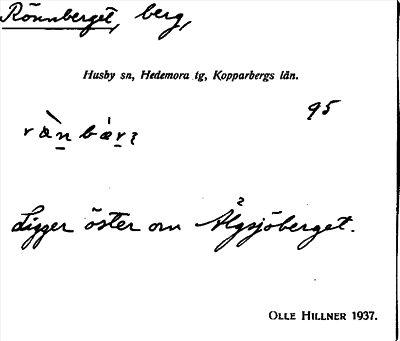 Rönnberget, berg,
Husby sn, Hedemora tg, Kopparbergs län.
95
Ligger öster om Älgsjöberget.
OLLE HILLNER 1937.